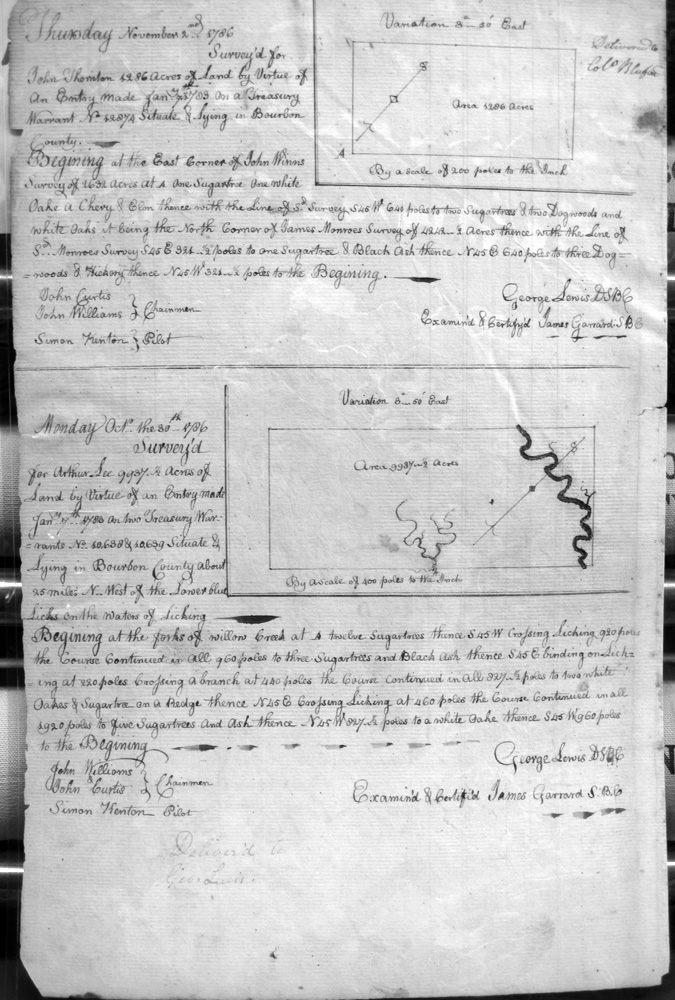 Thursday November 2nd 1786
Survey'd for
John Thornton 1286 Acres of Land by Virtue of
An Entry made Jany 1783 On a Treasury
Warrant No 12874 Situate & Lying in Bourbon
County.
Variation 3° 50' East
Area 1286 Acres
A
By a scale of 200 poles to the Inch
Delivered to
Colo
Begining at the East Corner of John Winns
Survey of 1632 Acres at A One Sugartree One white
Oake A Chery & Elm thence with the Line of Sd Survey S45W 640 poles to two Sugartrees & two Dogwoods and
white Oaks it being the North Corner of James Monroes Survey of Acres thence with the Line of
Sd Monroes Survey S45E 321 ½ poles to One Sugartree & Black Ash thence N45E 640 poles to three Dog=
=woods & Hickory thence N45W 321 ½ poles to the Begining.
John Curtis
John Williams } Chainmen
Simon Kenton } Pilot
George Lewis DSBC
Examin'd & Certify'd James Garrard SBC
Monday Octr the 30th 1786
Survey'd
for Arthur Lee 9937 ½ Acres of
Land by Virtue of an Entry made
Jany 1783 On two Treasury War=
=rants No 10638 & 10639 Situate &
Lying in Bourbon County about
25 miles N West of the Lower blue
Licks On the Waters of Licking
Variation 3° 50' East
Area 9937 ½ Acres
By A scale of 400 poles to the Inch
Begining at the forks of willow Creek at A twelve Sugartrees thence S45W Crossing Licking 920 poles
the Course Continued in All 960 poles to three Sugartrees and Black Ash thence S45E binding on Lick=
ing at 220 poles Crossing A branch at 440 poles the Course Continued in All 827 ½ poles to two white
Oakes & Sugartree On A Redge thence N45E Crossing Licking at 460 poles the Course Continued in all
1920 poles to five Sugartrees And Ash thence N45W 827 ½ poles to a white Oake thence S45W 960 poles
to the Begining
John Williams
John Curtis } Chainmen
Simon Kenton Pilot
George Lewis DSBC
Examin'd & Certifi'd James Garrard S.B.C
Deliver'd to
Geo. Lewis